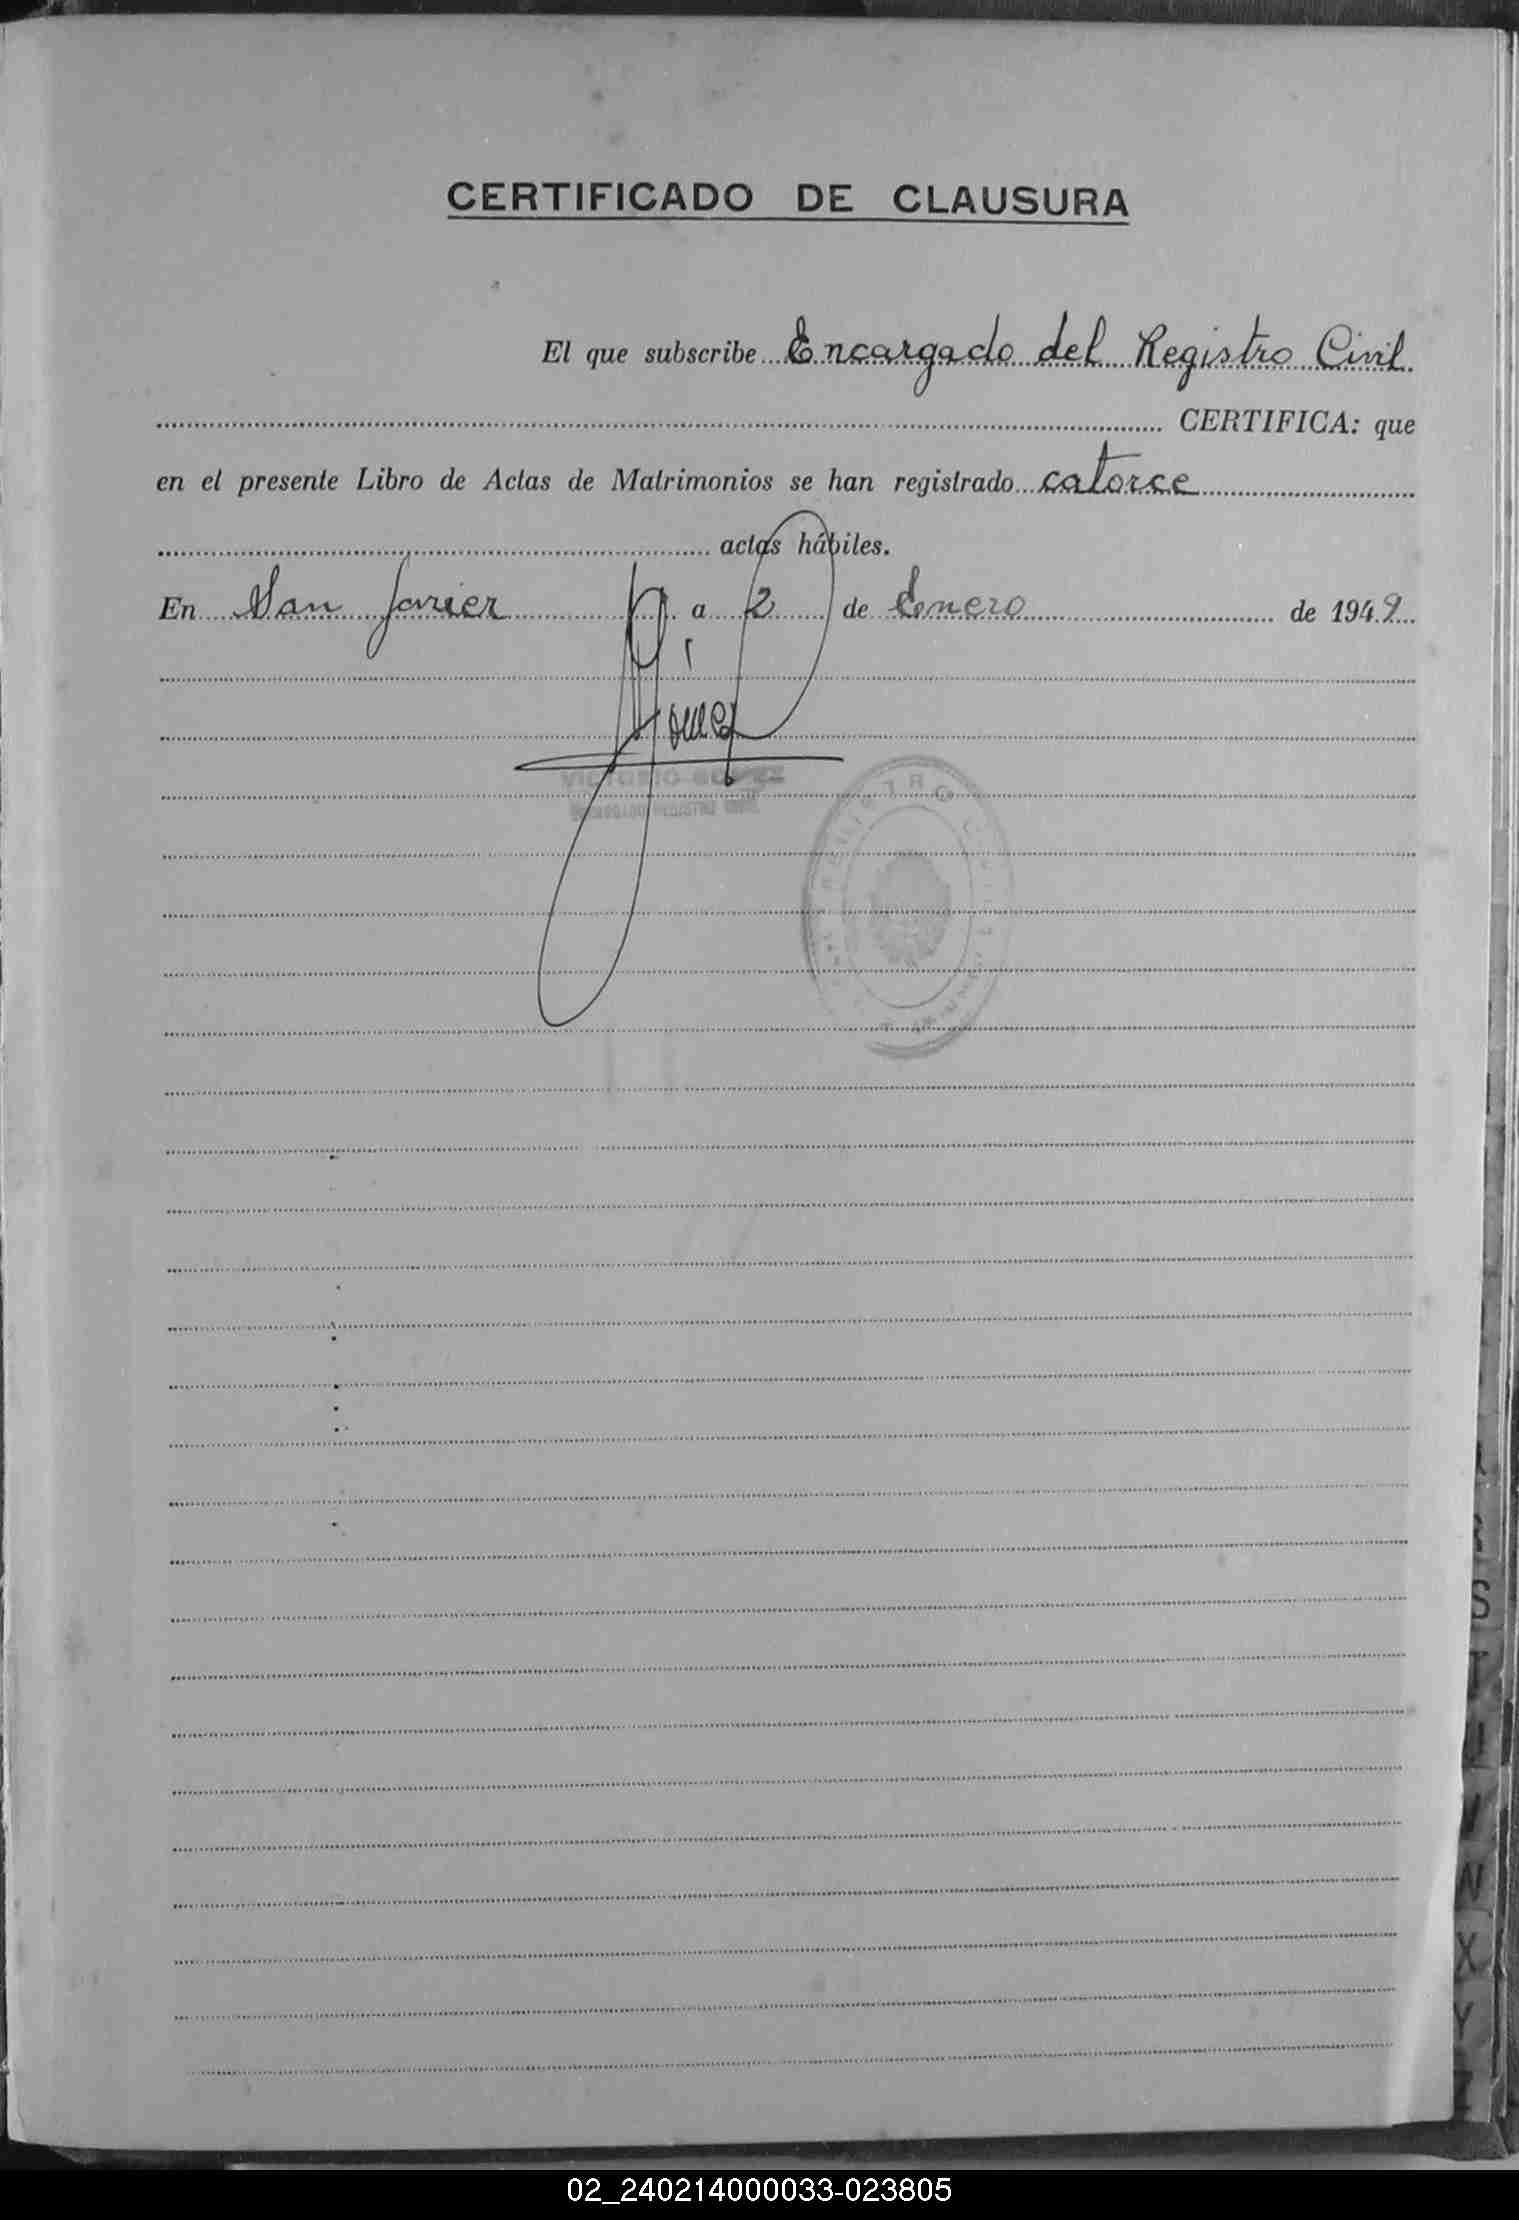 CERTIFICADO DE CLAUSURA
El que subscribe Encargado del Registro Civil
CERTIFICA: que
en el presente Libro de Actas de Matrimonios se han registrado catorce
actas hábiles.
En San Javier a 2 de Enero de 1949
Gómez
VICTORIO GOMEZ
ENCARGADO REGISTRO CIVIL
REGISTRO CIVIL
S
T
N
X
Y
Z
02_240214000033-023805